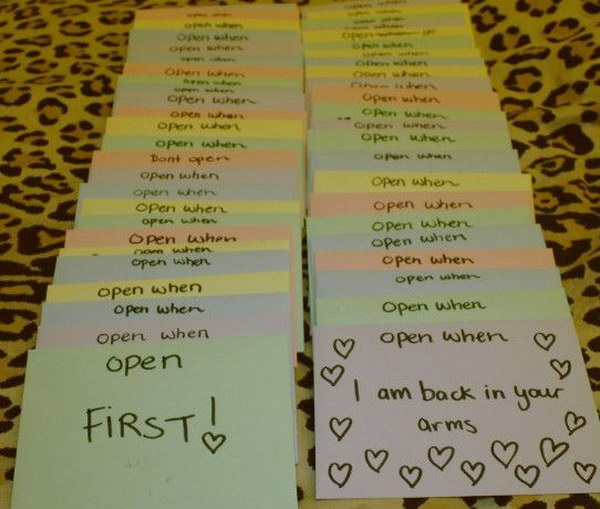 open when
open when
Open when
open when
open when
Open when
open when
open when
Open when
Open when
open when
Dont open
open when
open when
Open when
open when
Open when
open when
open when
open when
open when
open when
open
FIRST!
open when
open when
open when
Open when
open when
open when
open when
Open when
open when
open when
open when
open when
open when
open when
open when
open when
open when
open when
open when
open when
open when
I am back in your
arms